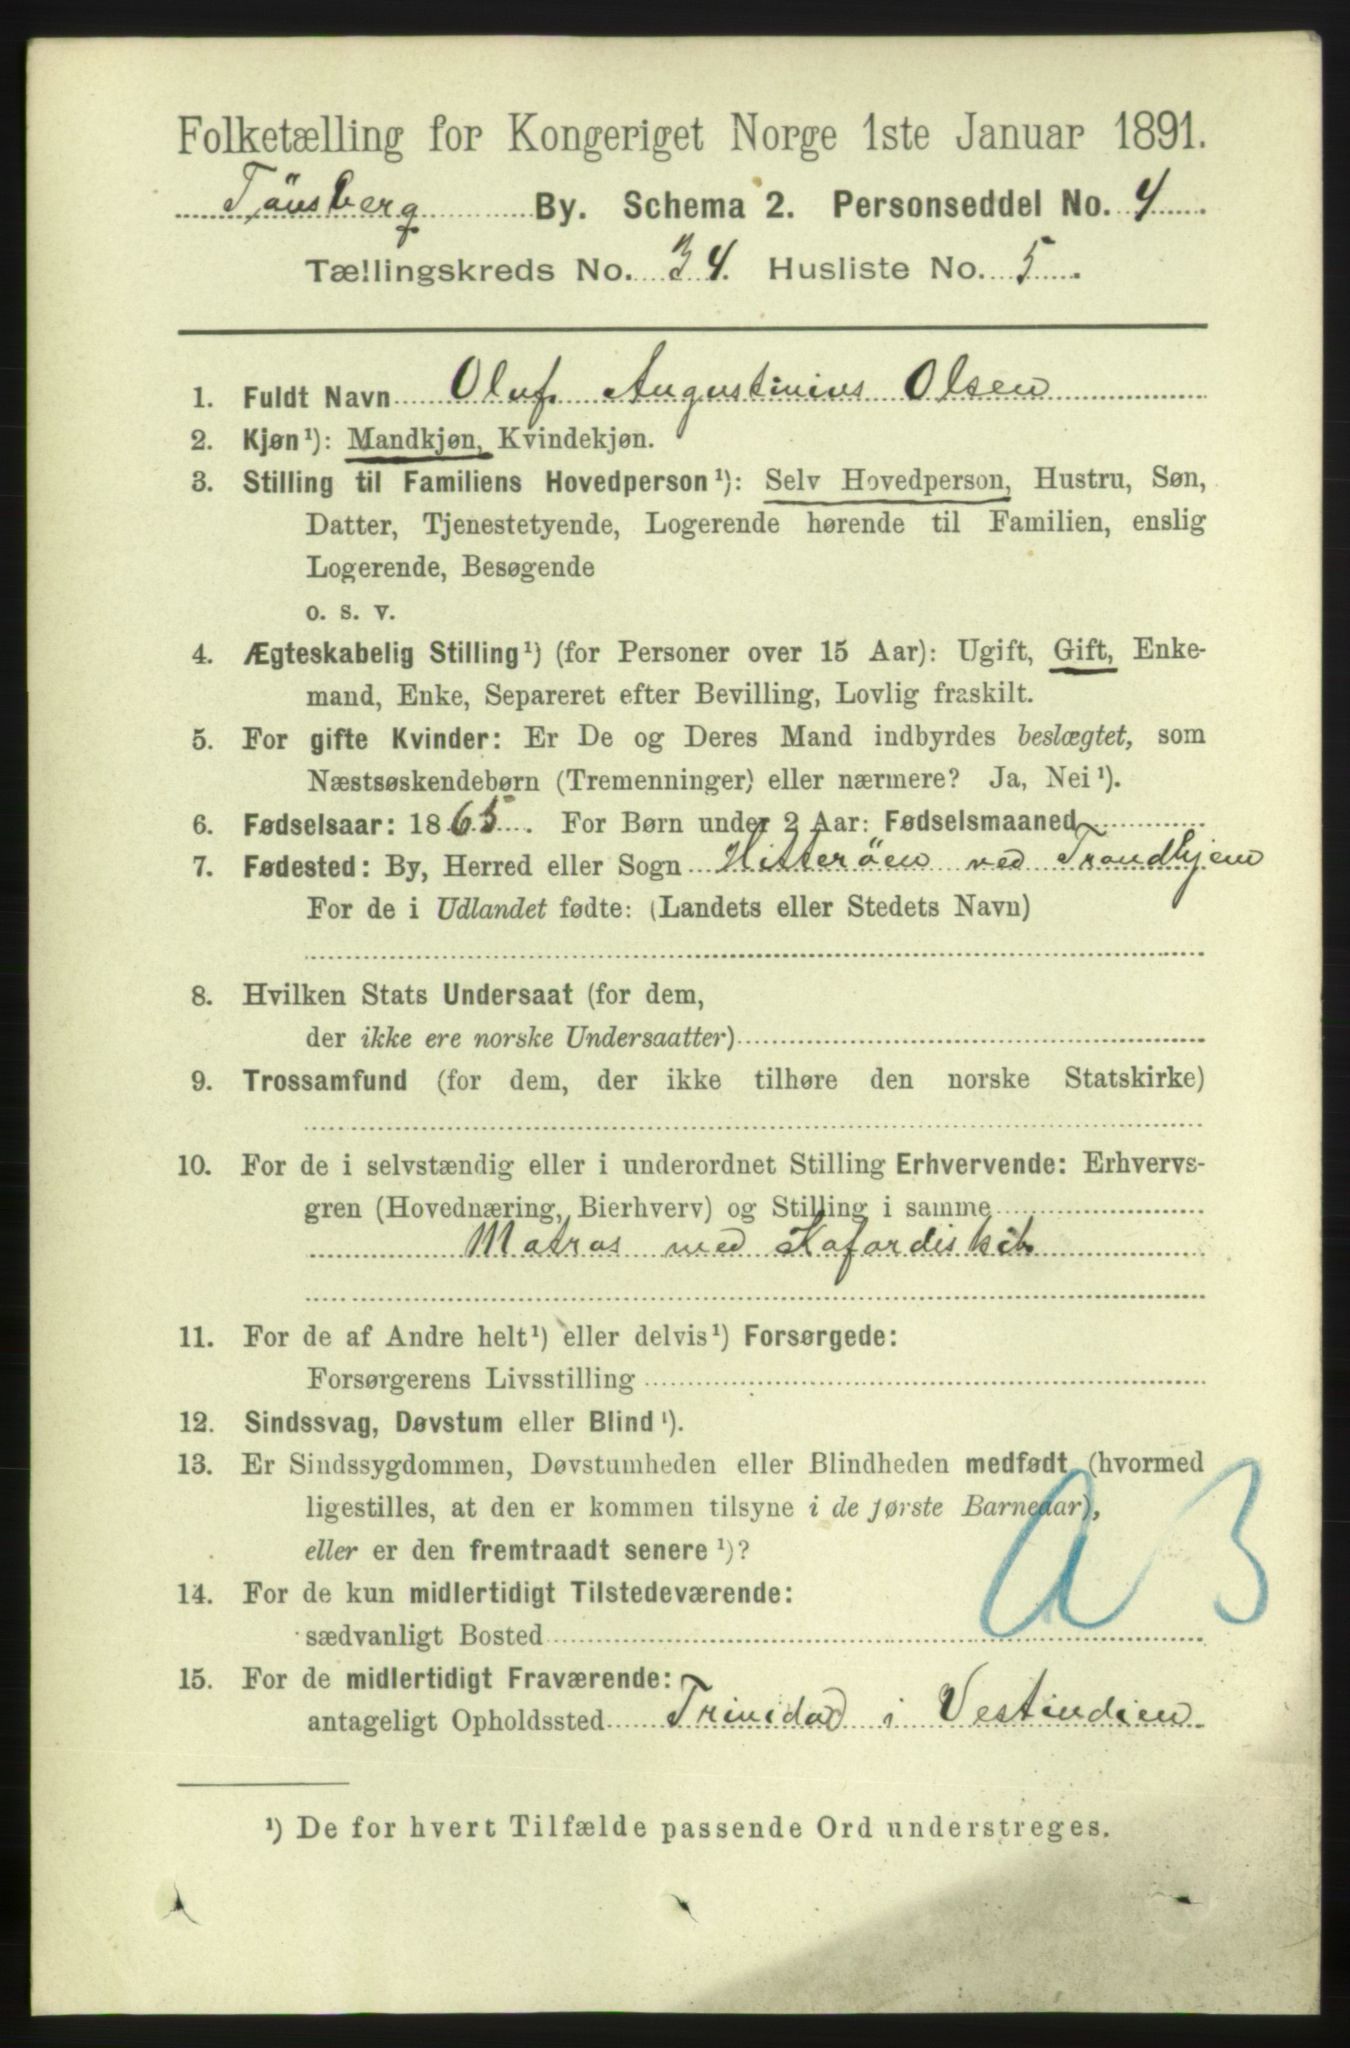 Folketælling for Kongeriget Norge 1ste Januar 1891.
Tönsberg By. Schema 2. Personseddel No. 4
Tællingskreds No. 34. Husliste No. 5.
1. Fuldt Navn Oluf Augustinius Olsen
2. Kjøn¹): Mandkjøn, Kvindekjøn.
3. Stilling til Familiens Hovedperson¹): Selv Hovedperson, Hustru, Søn,
Datter, Tjenestetyende, Logerende hørende til Familien, enslig
Logerende, Besøgende
o. s. v.
4. Ægteskabelig Stilling¹) (for Personer over 15 Aar): Ugift, Gift, Enke-
mand, Enke, Separeret efter Bevilling, Lovlig fraskilt.
5. For gifte Kvinder: Er De og Deres Mand indbyrdes beslægtet, som
Næstsøskendebørn (Tremenninger) eller nærmere? Ja, Nei¹).
6. Fødselsaar: 1865. For Børn under 2 Aar: Fødselsmaaned
7. Fødested: By, Herred eller Sogn Hitteröen ved Trondhjem
For de i Udlandet fødte: (Landets eller Stedets Navn)
8. Hvilken Stats Undersaat (for dem,
der ikke ere norske Undersaatter)
9. Trossamfund (for dem, der ikke tilhøre den norske Statskirke)
10. For de i selvstændig eller i underordnet Stilling Erhvervende: Erhvervs-
gren (Hovednæring, Bierhverv) og Stilling i samme
Matros med Kofardiskib
11. For de af Andre helt¹) eller delvis¹) Forsørgede:
Forsørgerens Livsstilling
12. Sindssvag, Døvstum eller Blind¹).
13. Er Sindssygdommen, Døvstumheden eller Blindheden medfødt (hvormed
ligestilles, at den er kommen tilsyne i de første Barneaar),
eller er den fremtraadt senere¹)?
14. For de kun midlertidigt Tilstedeværende:
sædvanligt Bosted
15. For de midlertidigt Fraværende:
antageligt Opholdssted Trinidad i Vestindien.
¹) De for hvert Tilfælde passende Ord understreges.